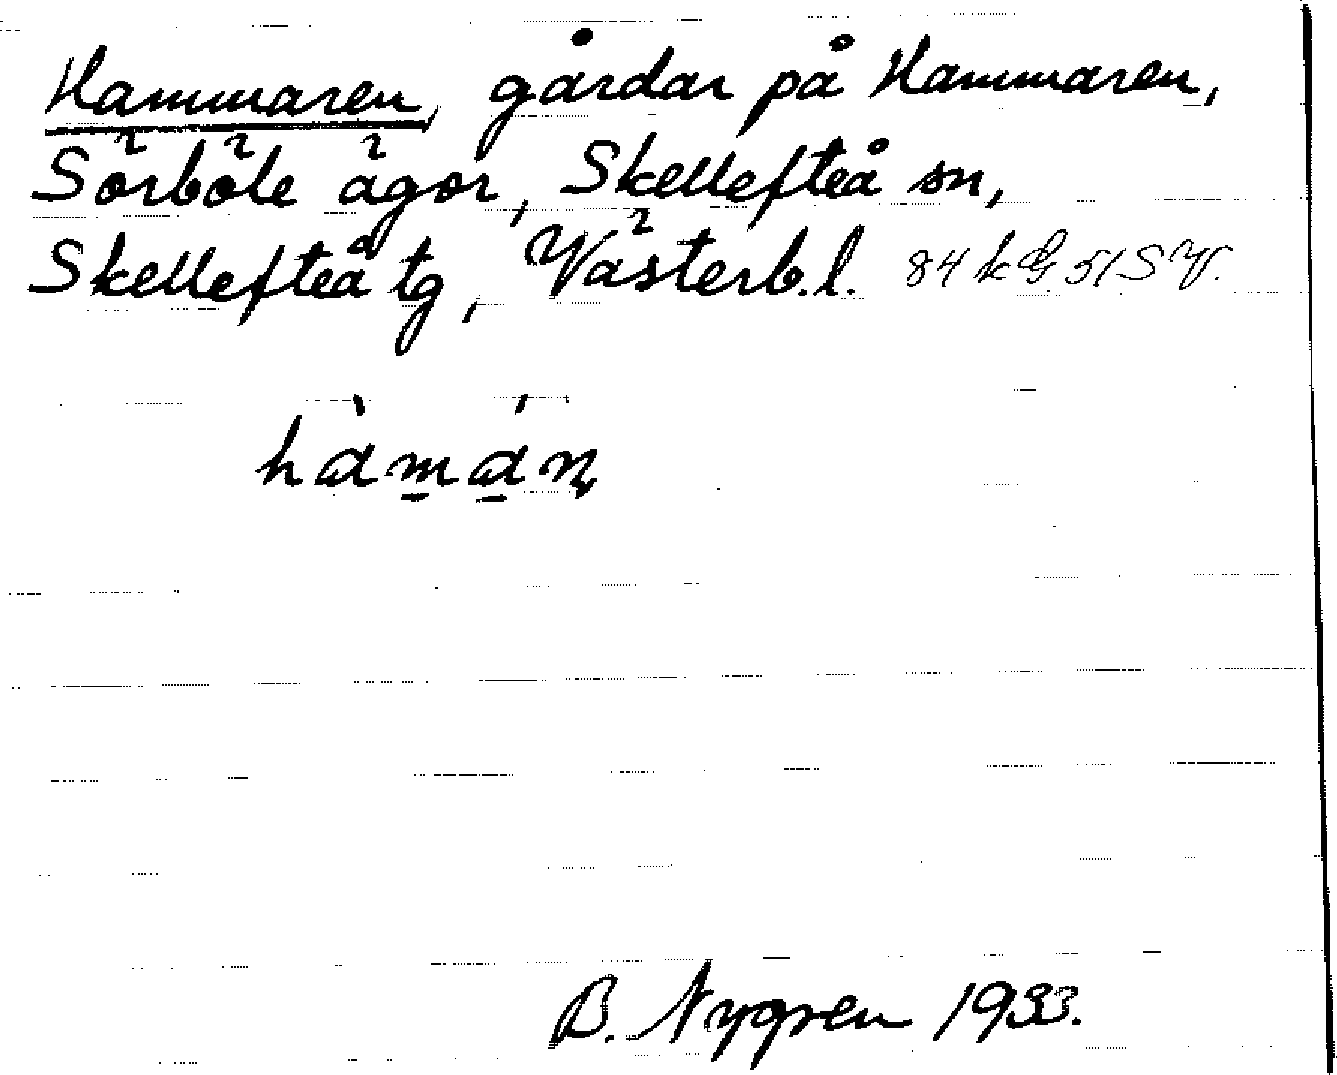 Hammaren, gårdar på Hammaren,
Sörböle ägor, Skellefteå sn,
Skellefteå tg, Västerb.l. 84 k G 51 S V.
hàmán
B. Nygren 1933.